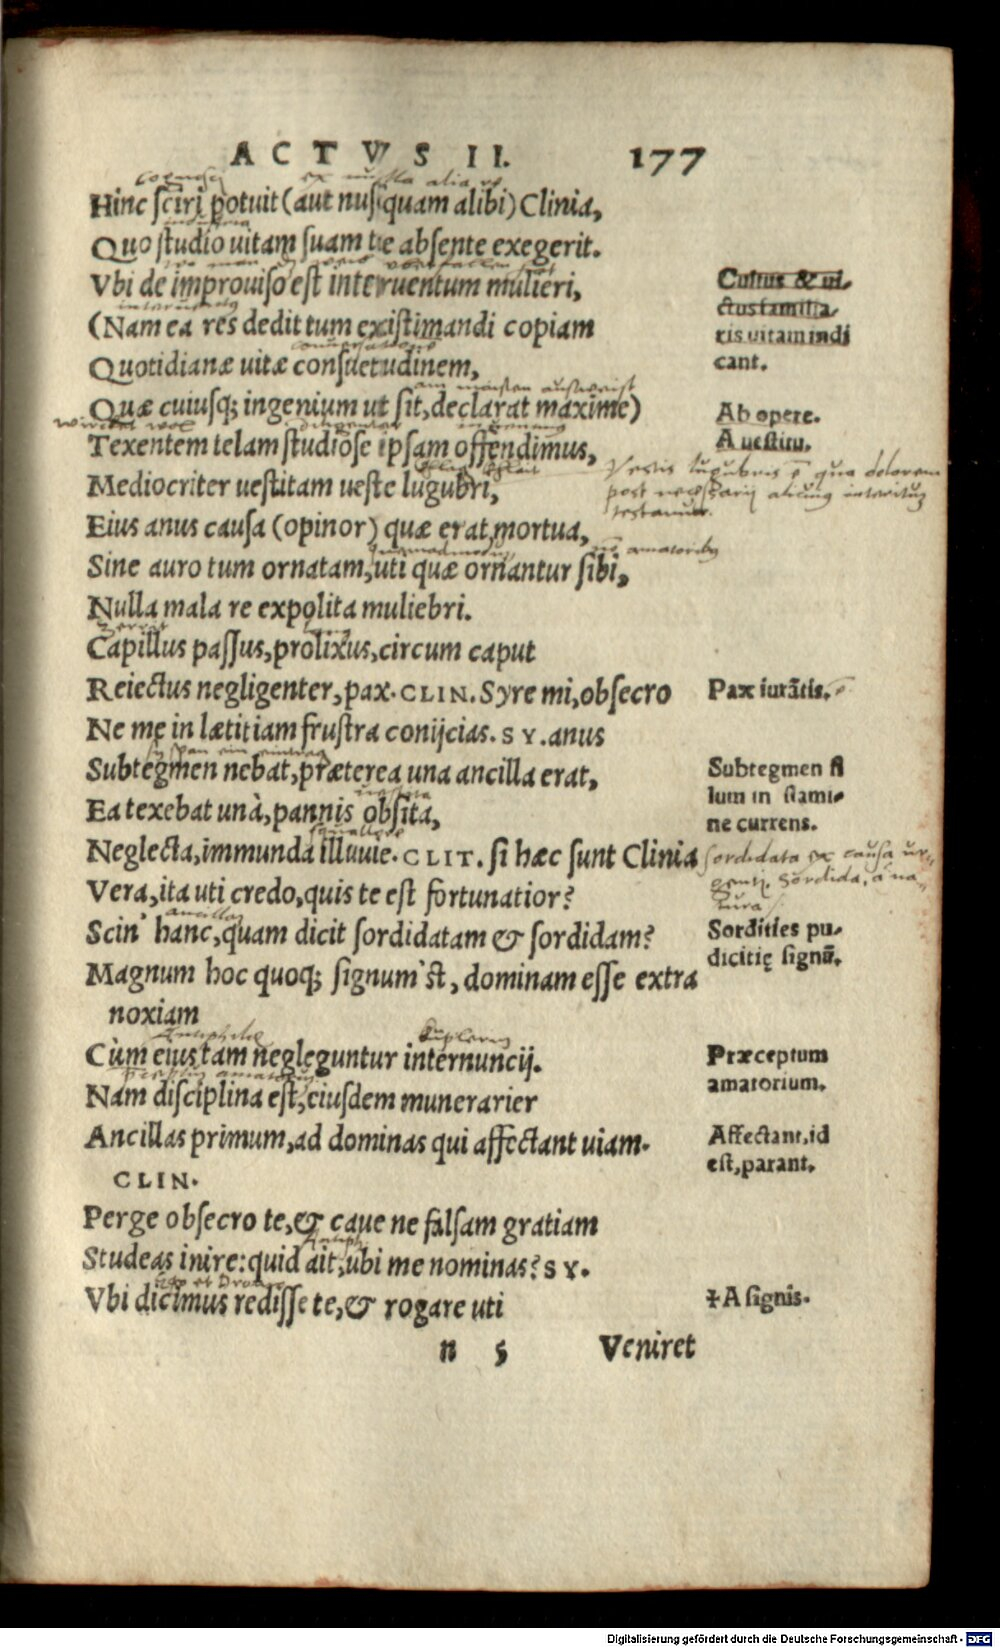 ACTVS II. 177
Hinc sciri potuit (aut nusquam alibi) Clinia,
Quo studio uitam suam te absente exegerit.
Vbi de improuiso est interuentum mulieri,
(Nam ea res dedit tum existimandi copiam
Quotidianæ uitæ consuetudinem,
Quæ cuiusq; ingenium ut sit, declarat maxime)
Texentem telam studiose ipsam offendimus,
Mediocriter uestitam ueste lugubri,
Eius anus causa (opinor) quæ erat mortua,
Sine auro tum ornatam, uti quæ ornantur sibi,
Nulla mala re expolita muliebri.
Capillus passus, prolixus, circum caput
Reiectus negligenter, pax. CLIN. Syre mi, obsecro
Ne me in lætitiam frustra conijcias. SY. anus
Subtegmen nebat, præterea una ancilla erat,
Ea texebat unà, pannis obsita,
Neglecta, immunda illuuie. CLIT. si hæc sunt Clinia
Vera, ita uti credo, quis te est fortunatior?
Scin' hanc, quam dicit sordidatam & sordidam?
Magnum hoc quoq; signum'st, dominam esse extra
noxiam
Cùm eius tam negleguntur internuncij.
Nam disciplina est, eiusdem munerarier
Ancillas primum, ad dominas qui affectant uiam.
CLIN.
Perge obsecro te, & caue ne falsam gratiam
Studeas inire: quid ait, ubi me nominas? SY.
Vbi dicimus redisse te, & rogare uti
n 5 Veniret
Cultus & ui-
ctus familia-
ris uitam indi
cant.
Ab opere.
A uestitu.
Vestis lugubris ē qua dolorem
post necessarij alicuius interitum
testamur.
Pax iurātis.
Subtegmen fi
lum in stami-
ne currens.
sordidata ex causa ur-
genti. Sordida, à na-
tura
Sordities pu-
dicitię signū.
Præceptum
amatorium.
Affectant, id
est, parant.
☩ A signis.
cognosci
ex nulla alia re
conuersatione
amatoribus
ancillam
Digitalisierung gefördert durch die Deutsche Forschungsgemeinschaft - DFG